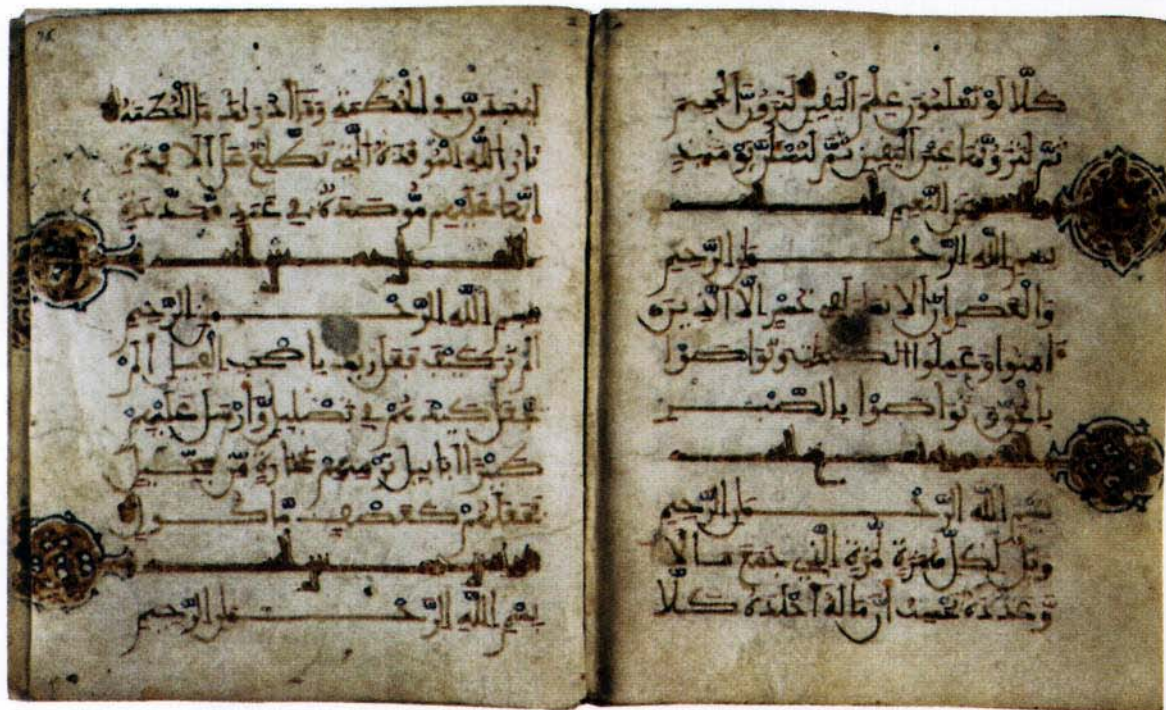 كلّا لو تعلمون علم اليقين لترونّ الجحيم
ثمّ لترونّها عين اليقين ثمّ لتسئلنّ يومئذ
عن النّعيم
بسم الله الرّحمن الرّحيم
والعصر انّ الانسان لفي خسر الّا الّذين
ءامنوا وعملوا الصّلحت وتواصوا
بالحقّ وتواصوا بالصّبر
بسم الله الرّحمن الرّحيم
ويل لّكلّ همزة لّمزة الّذي جمع مالا
وّعدّده يحسب انّ ماله اخلده كلّا
لينبذنّ في الحطمة وما ادريك ما الحطمة
نار الله الموقدة الّتي تطّلع على الافئدة
انّها عليهم مّوصدة في عمد مّمدّدة
بسم الله الرّحمن الرّحيم
الم تر كيف فعل ربّك باصحب الفيل الم
يجعل كيدهم في تضليل وّارسل عليهم
طيرا ابابيل ترميهم بحجارة مّن سجّيل
فجعلهم كعصف مّاكول
بسم الله الرّحمن الرّحيم